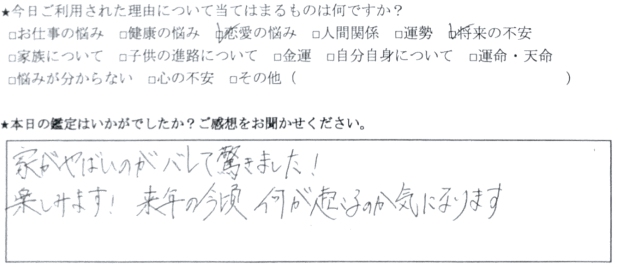 ★今日ご利用された理由について当てはまるものは何ですか？
□お仕事の悩み □健康の悩み □恋愛の悩み □人間関係 □運勢 □将来の不安
□家族について □子供の進路について □金運 □自分自身について □運命・天命
□悩みが分からない □心の不安 □その他（ ）
★本日の鑑定はいかがでしたか？ご感想をお聞かせください。
家がやばいのがバレて驚きました！
楽しみます！ 来年の今頃 何が起こるのか気になります